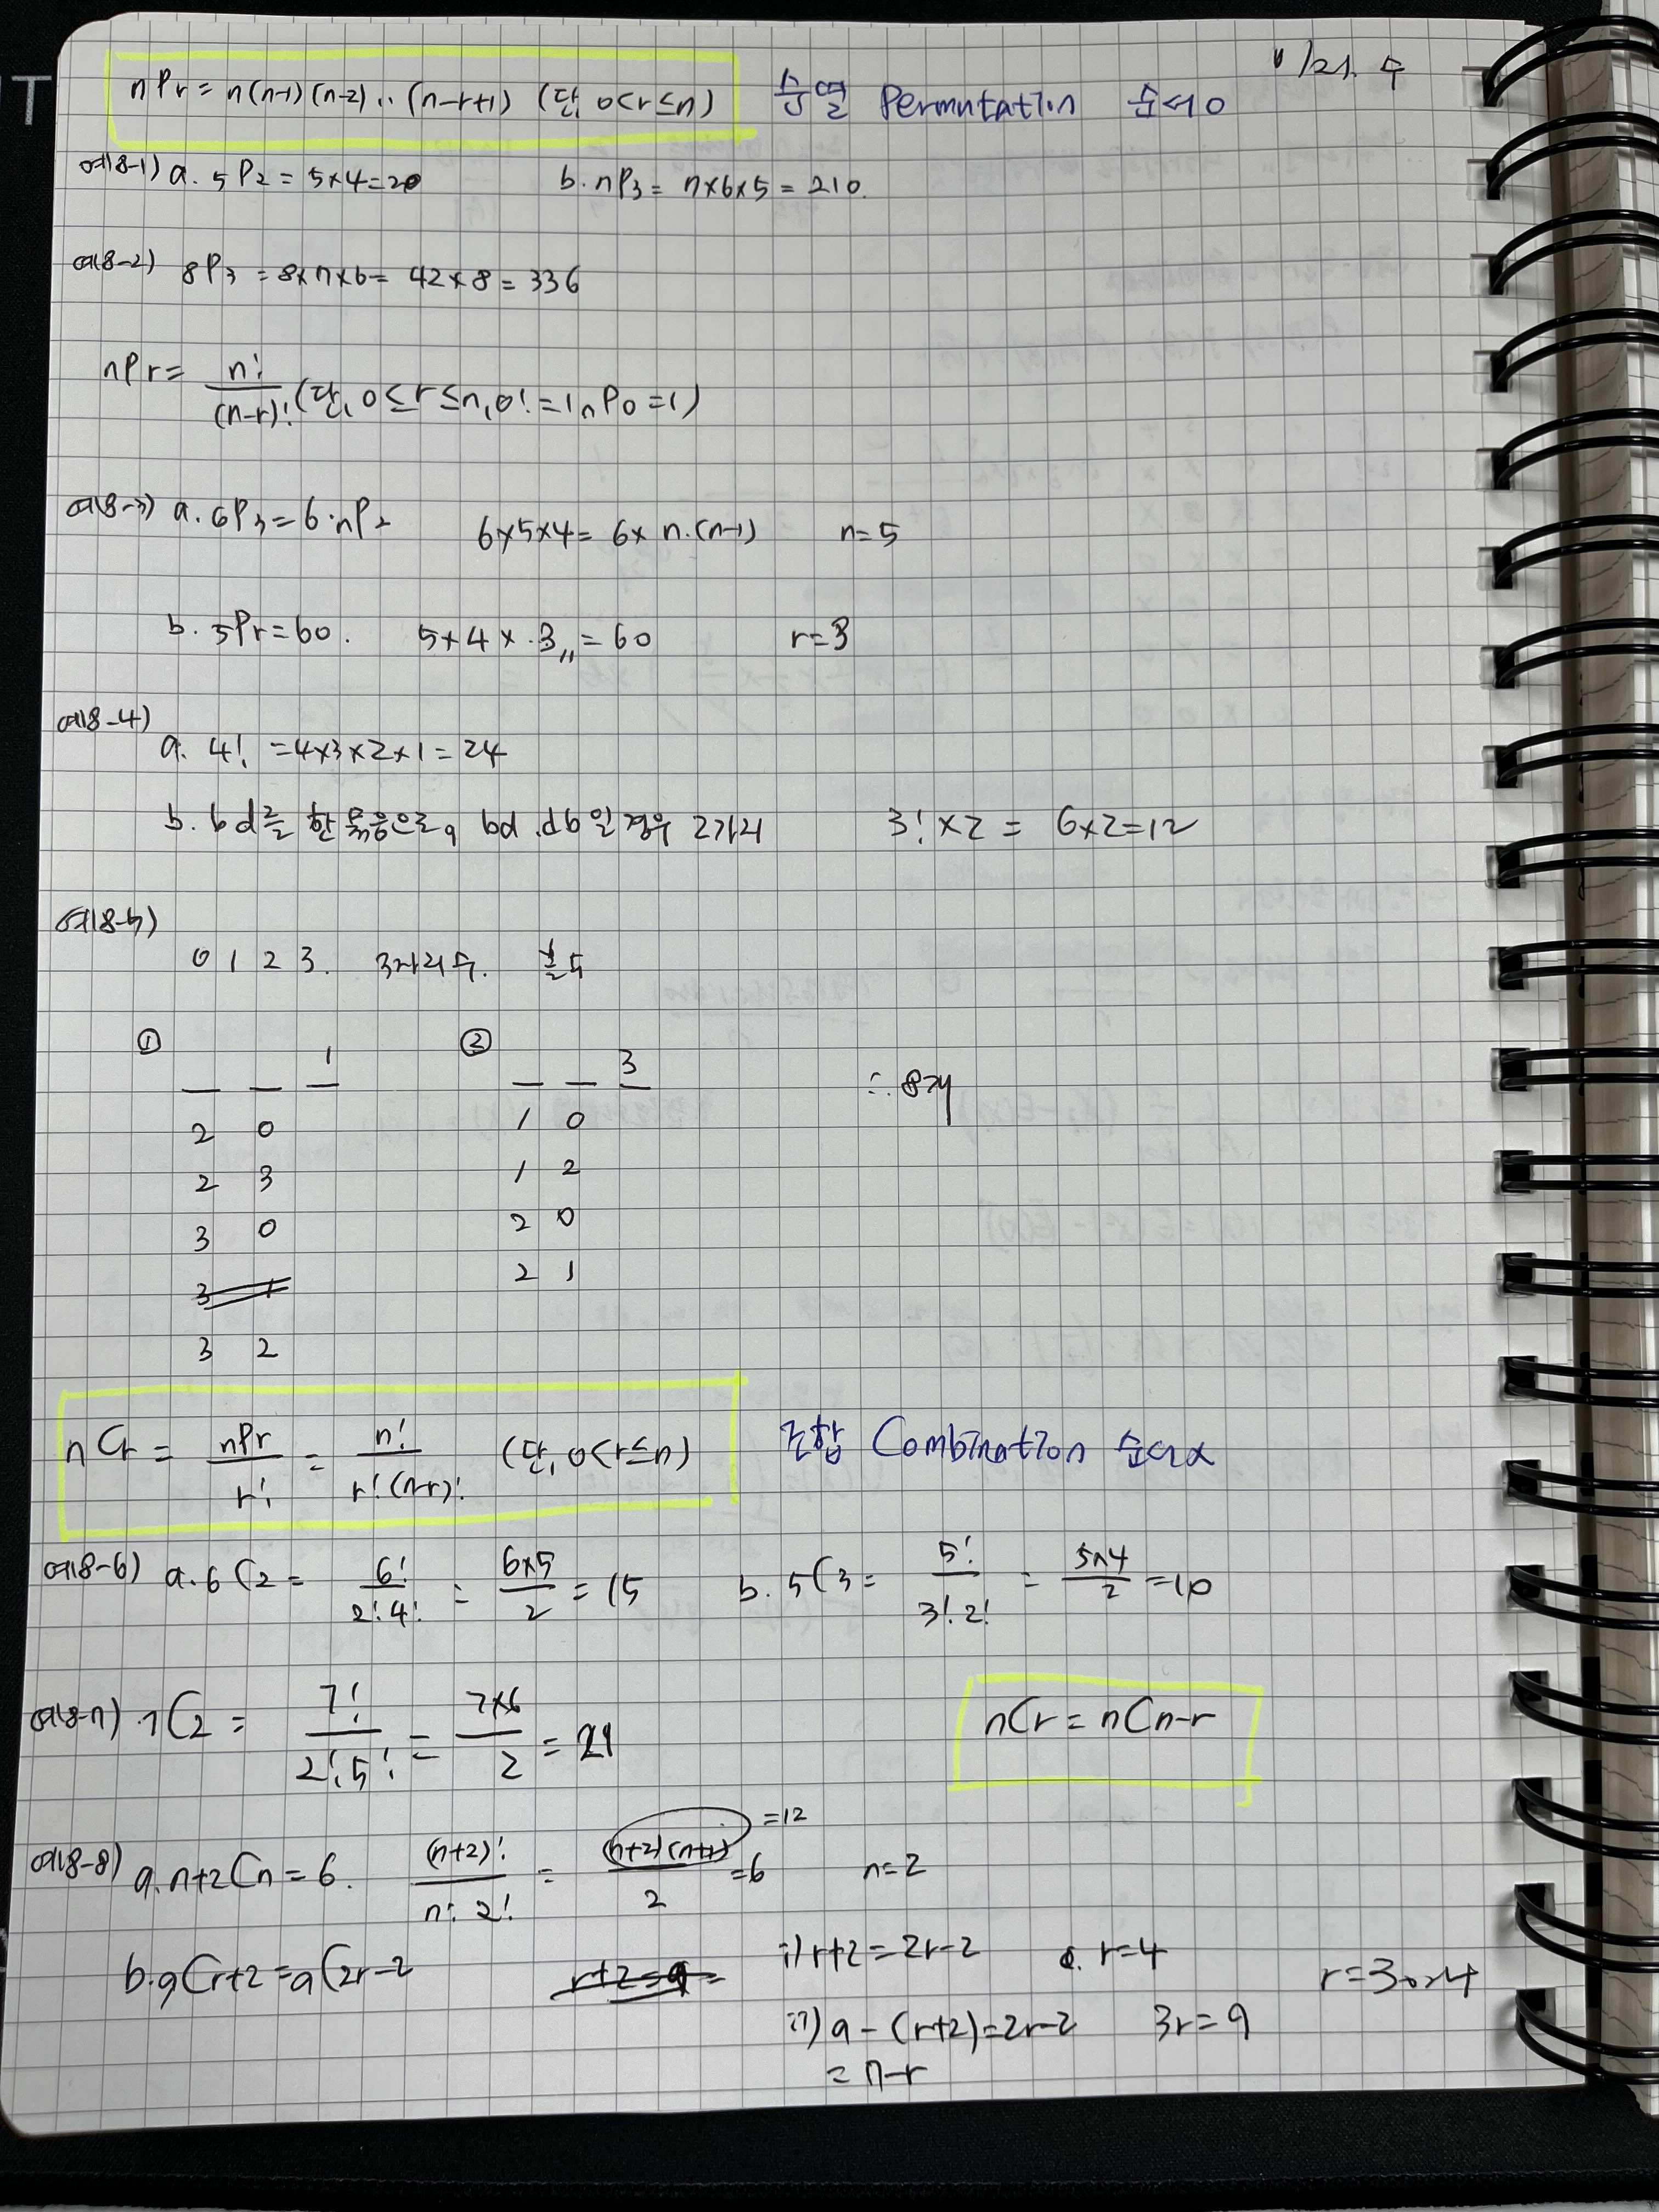 1/21. 수
nPr = n(n-1)(n-2)‥(n-r+1) (단, 0<r≤n) 순열 Permutation 순서O
예8-1) a. 5P2 = 5×4=20 b. 7P3 = 7×6×5 = 210.
예8-2) 8P3 = 8×7×6= 42×8 = 336
nPr= n!/(n-r)! (단, 0≤r≤n, 0!=1 nP0=1)
예8-3) a. 6P3=6·nP2 6×5×4= 6× n·(n-1) n=5
b. 5Pr=60. 5×4×·3,,=60 r=3
예8-4)
a. 4! =4×3×2×1=24
b. bd를 한 묶음으로, bd, db일 경우 2가지 3!×2 = 6×2=12
예8-5)
0 1 2 3. 3자리수. 홀수
① _ _ 1 ② _ _ 3 ∴ 8개
2 0 1 0
2 3 1 2
3 0 2 0
3 1 2 1
3 2
nCr = nPr/r! = n!/r!(n-r)! (단, 0<r≤n) 조합 Combination 순서x
예8-6) a. 6C2 = 6!/2!4! = 6×5/2 = 15 b. 5C3 = 5!/3!2! = 5×4/2 =10
예8-7) 7C2 = 7!/2!5! = 7×6/2 = 21 nCr = nCn-r
예8-8) a. n+2Cn = 6. (n+2)!/n!2! = (n+2)(n+1)/2 =6 =12 n=2
b. 9Cr+2 = 9C2r-2 r+2=9= i) r+2 = 2r-2 r=4 r=3 or 4
ii) 9-(r+2)=2r-2 3r=9
= n-r